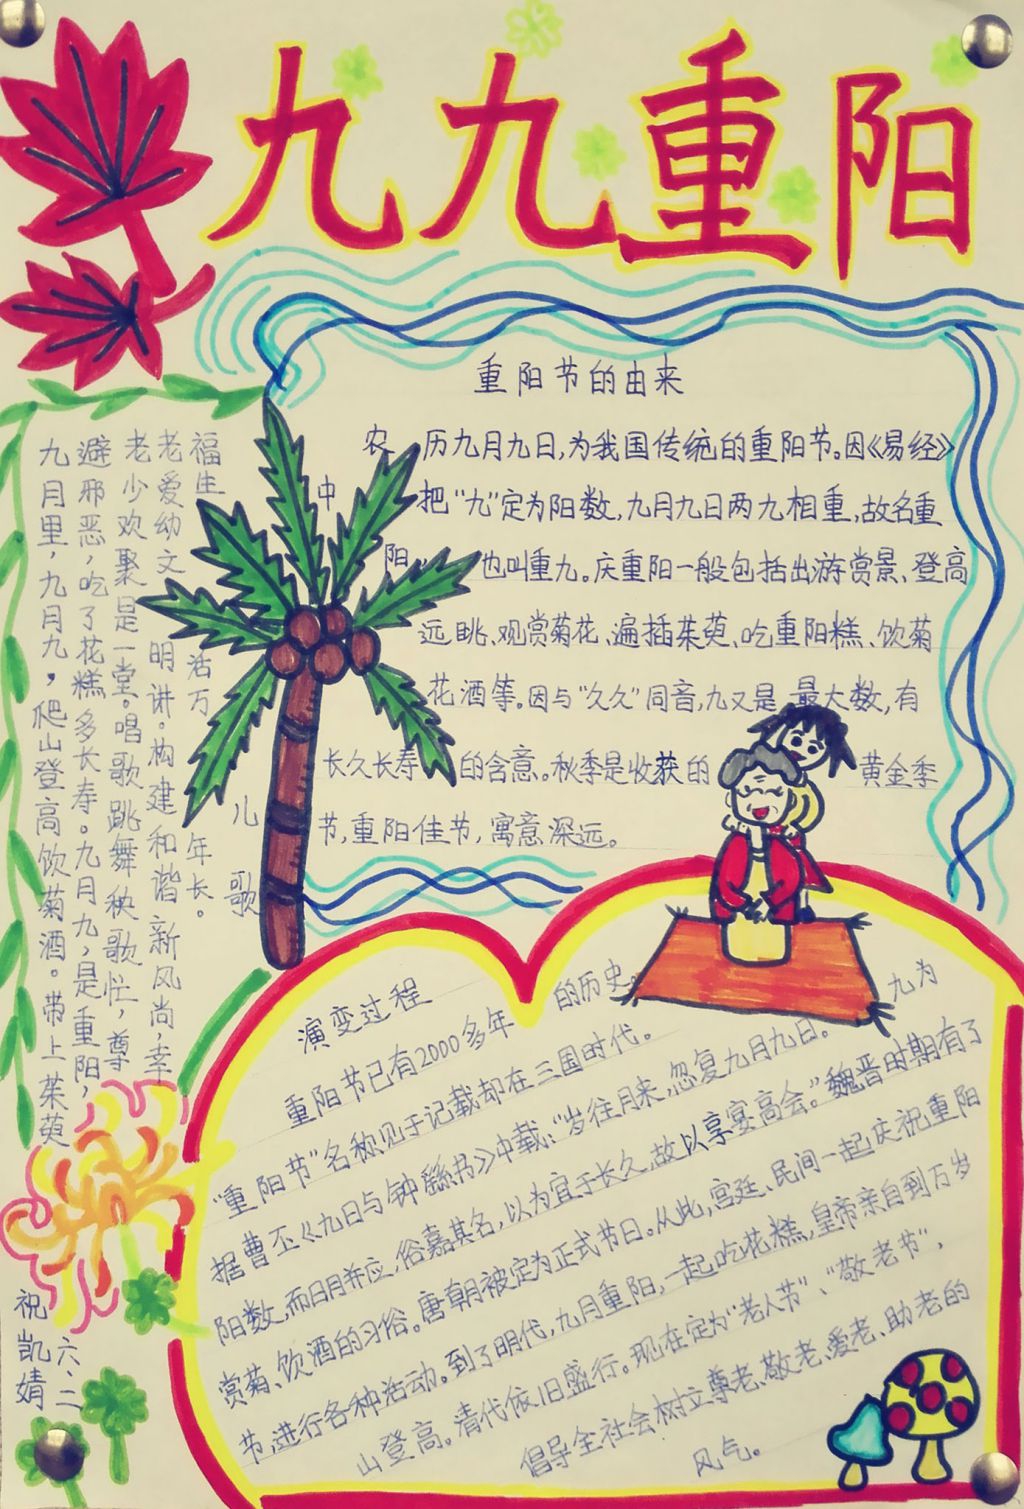 九九重阳
重阳节的由来
农历九月九日,为我国传统的重阳节。因《易经》
中把"九"定为阳数,九月九日两九相重,故名重
阳,也叫重九。庆重阳一般包括出游赏景、登高
远眺、观赏菊花、遍插茱萸、吃重阳糕、饮菊
花酒等。因与"久久"同音,九又是最大数,有
长久长寿的含意。秋季是收获的黄金季
节,重阳佳节,寓意深远。
儿歌
九月里,九月九,爬山登高饮菊酒。带上茱萸
避邪恶,吃了花糕多长寿。九月九,是重阳,
老少欢聚是一堂。唱歌跳舞秧歌忙,尊
老爱幼文明讲。构建和谐新风尚,幸
福生活万年长。
演变过程
重阳节已有2000多年的历史。
"重阳节"名称见于记载却在三国时代。
据曹丕《九日与钟繇书》中载:"岁往月来,忽复九月九日。九为
阳数,而日月并应,俗嘉其名,以为宜于长久,故以享宴高会。"魏晋时期有了
赏菊、饮酒的习俗。唐朝被定为正式节日。从此,宫廷、民间一起庆祝重阳
节,进行各种活动。到了明代,九月重阳,一起吃花糕,皇帝亲自到万岁
山登高。清代依旧盛行。现在定为"老人节"、"敬老节",
倡导全社会树立尊老、敬老、爱老、助老的
风气。
六、二
祝凯婧